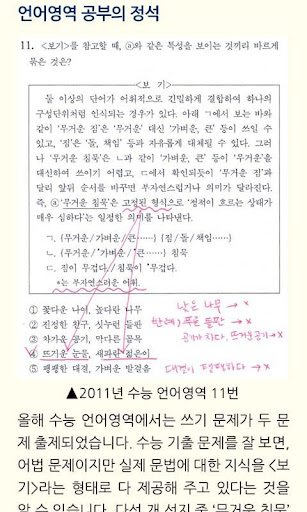 언어영역 공부의 정석
11. <보기>를 참고할 때, ⓐ와 같은 특성을 보이는 것끼리 바르게
묶은 것은?
<보 기>
둘 이상의 단어가 어휘적으로 긴밀하게 결합하여 하나의
구성단위처럼 인식되는 경우가 있다. 아래 ㄱ에서 보는 바와
같이 '무거운 짐'은 '무거운' 대신 '가벼운, 큰' 등이 쓰일 수
있고, '짐'은 '돌, 책임' 등과 자유롭게 대체될 수 있다. 그러
나 '무거운 침묵'은 ㄴ과 같이 '가벼운, 큰' 등이 '무거운'을
대신하여 쓰이기 어렵고, ㄷ에서 확인되듯이 '무거운 짐'과
달리 앞뒤 순서를 바꾸면 부자연스럽거나 의미가 달라진다.
즉, ⓐ'무거운 침묵'은 고정된 형식으로 '정적이 흐르는 상태가
매우 심하다'는 일정한 의미를 나타낸다.
ㄱ. {무거운/가벼운/큰……} {짐/돌/책임……}
ㄴ. {무거운/*가벼운/*큰……} 침묵
ㄷ. 짐이 무겁다./침묵이 *무겁다.
*는 부자연스러운 어휘.
① 꽃다운 나이, 높다란 나무
낮은 나무 → x
② 진정한 친구, 싱누런 들판
③ 차가운 공기, 막다른 골목
공기가 차다, 뜨거운 공기 → x
④ 뜨거운 눈물, 새파란 젊은이
⑤ 팽팽한 대결, 가벼운 발걸음
대결이 팽팽하다 → x
▲2011년 수능 언어영역 11번
올해 수능 언어영역에서는 쓰기 문제가 두 문
제 출제되었습니다. 수능 기출 문제를 잘 보면,
어법 문제이지만 실제 문법에 대한 지식을 <보
기>라는 형태로 다 제공해 주고 있다는 것을
알 수 있습니다. 다섯 개 선지 중 '무거운 침묵'